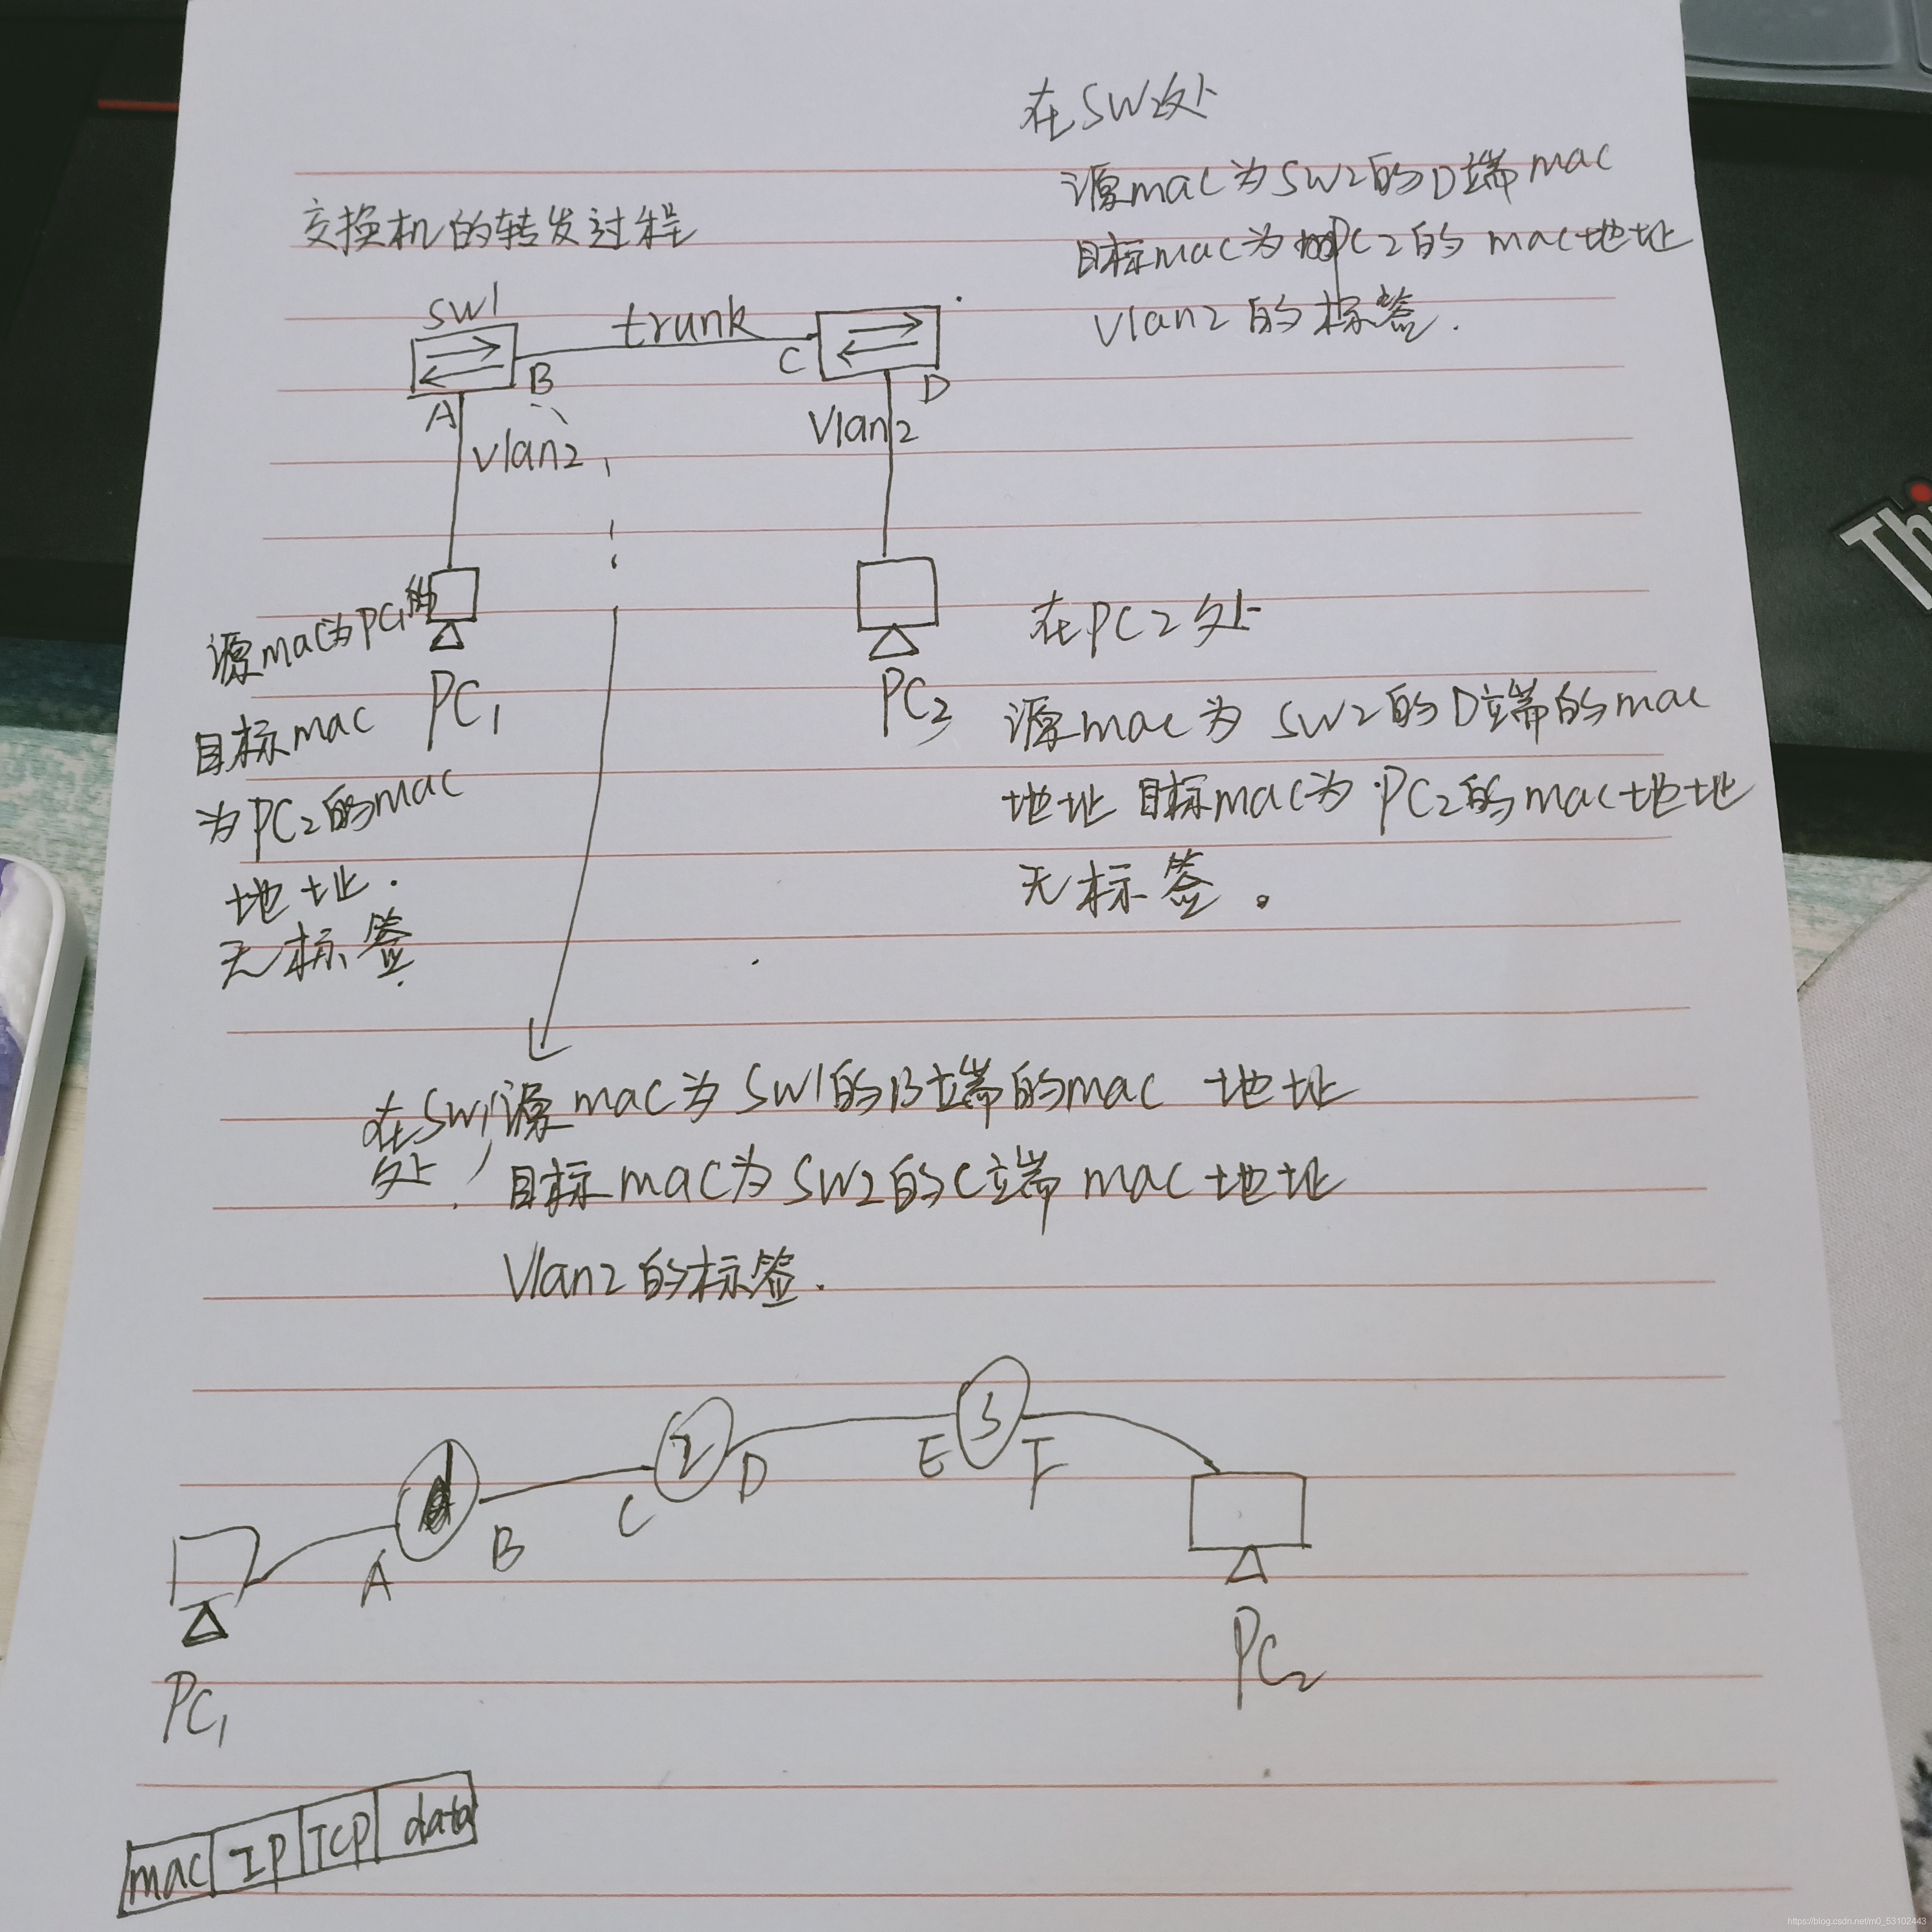 在SW2处
源mac为SW2的D端mac
目标mac为PC2的mac地址
vlan2的标签.
交换机的转发过程
SW1
trunk
A
B
C
D
vlan2
Vlan2
源mac为PC1的
目标mac
为PC2的mac
地址.
无标签.
PC1
PC2
在PC2处
源mac为SW2的D端的mac
地址 目标mac为PC2的mac地址
无标签。
在SW1处,源mac为SW1的B端的mac 地址
目标mac为SW2的C端mac地址
Vlan2的标签.
A
B
C
2
D
E
3
F
PC1
PC2
mac IP TCP data
Thi
https://blog.csdn.net/m0_53102443